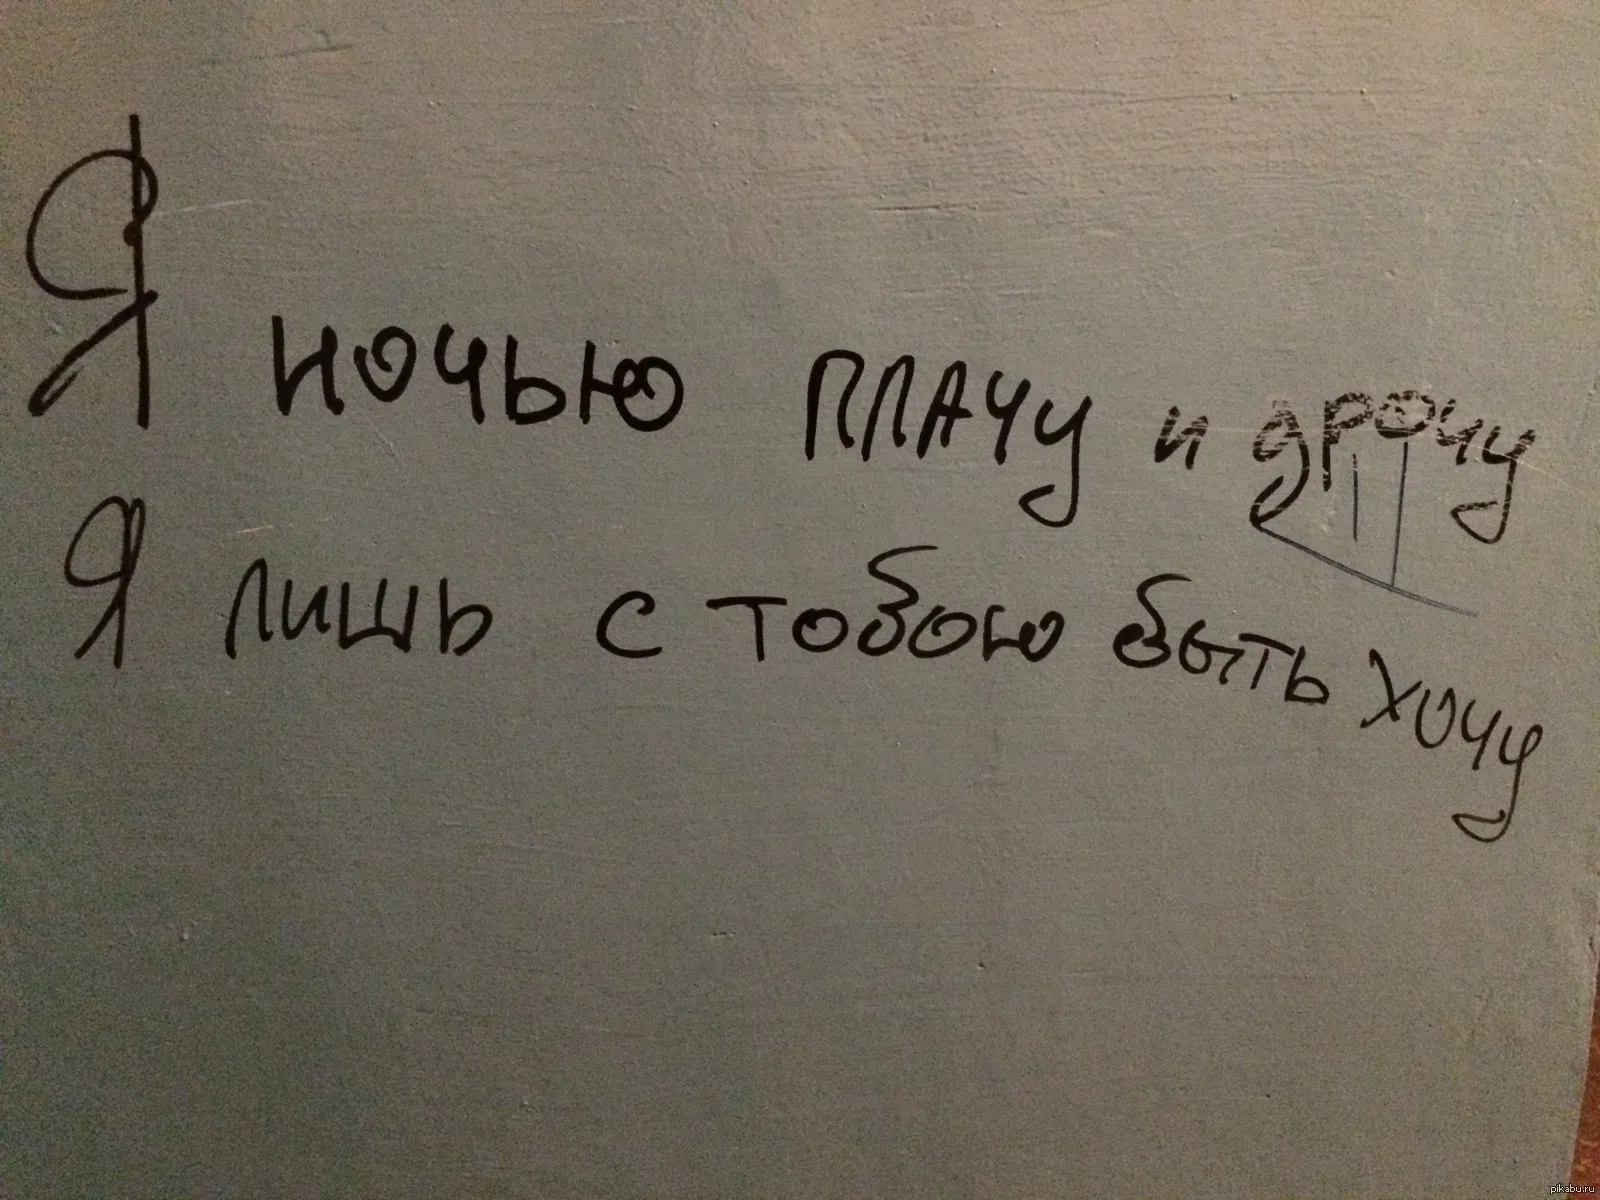 Я ночью плачу и дрочу
Я лишь с тобою быть хочу
pikabu.ru